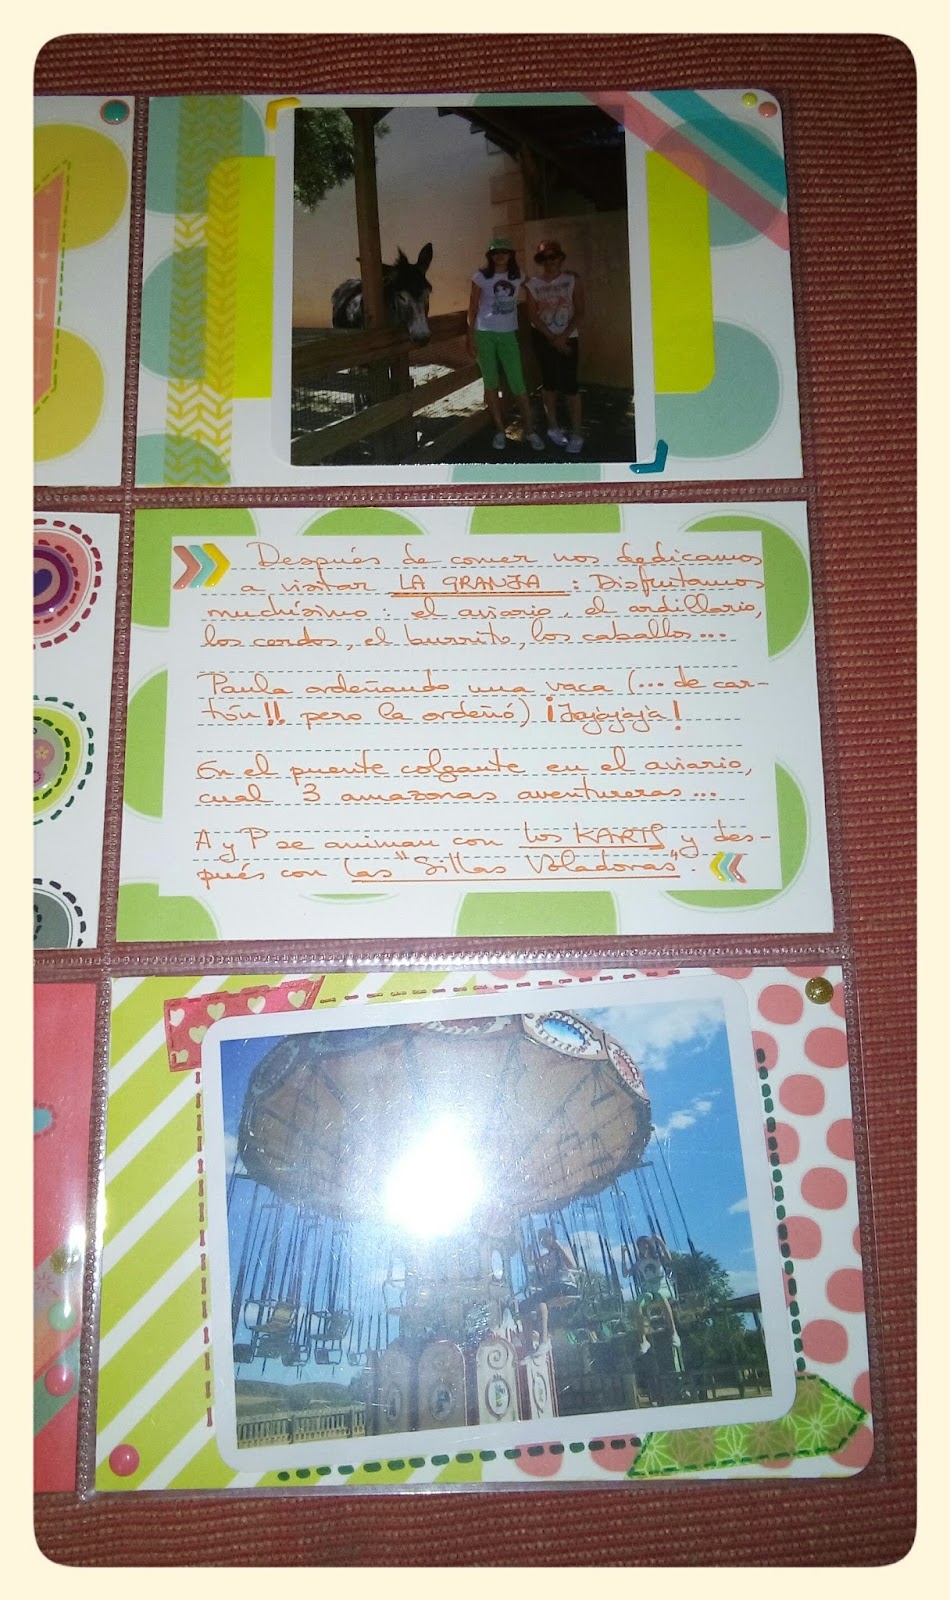 Después de comer nos dedicamos
a visitar LA GRANJA : Disfrutamos
muchísimo : el aviario, el ardillario,
los cerdos, el burrito, los caballos...
Paula ordeñando una vaca (... de car-
tón!! pero la ordeñó) ¡Jajajaja!
En el puente colgante en el aviario,
cual 3 amazonas aventureras...
A y P se animan con los KARTS y des-
pués con las "Sillas Voladoras".